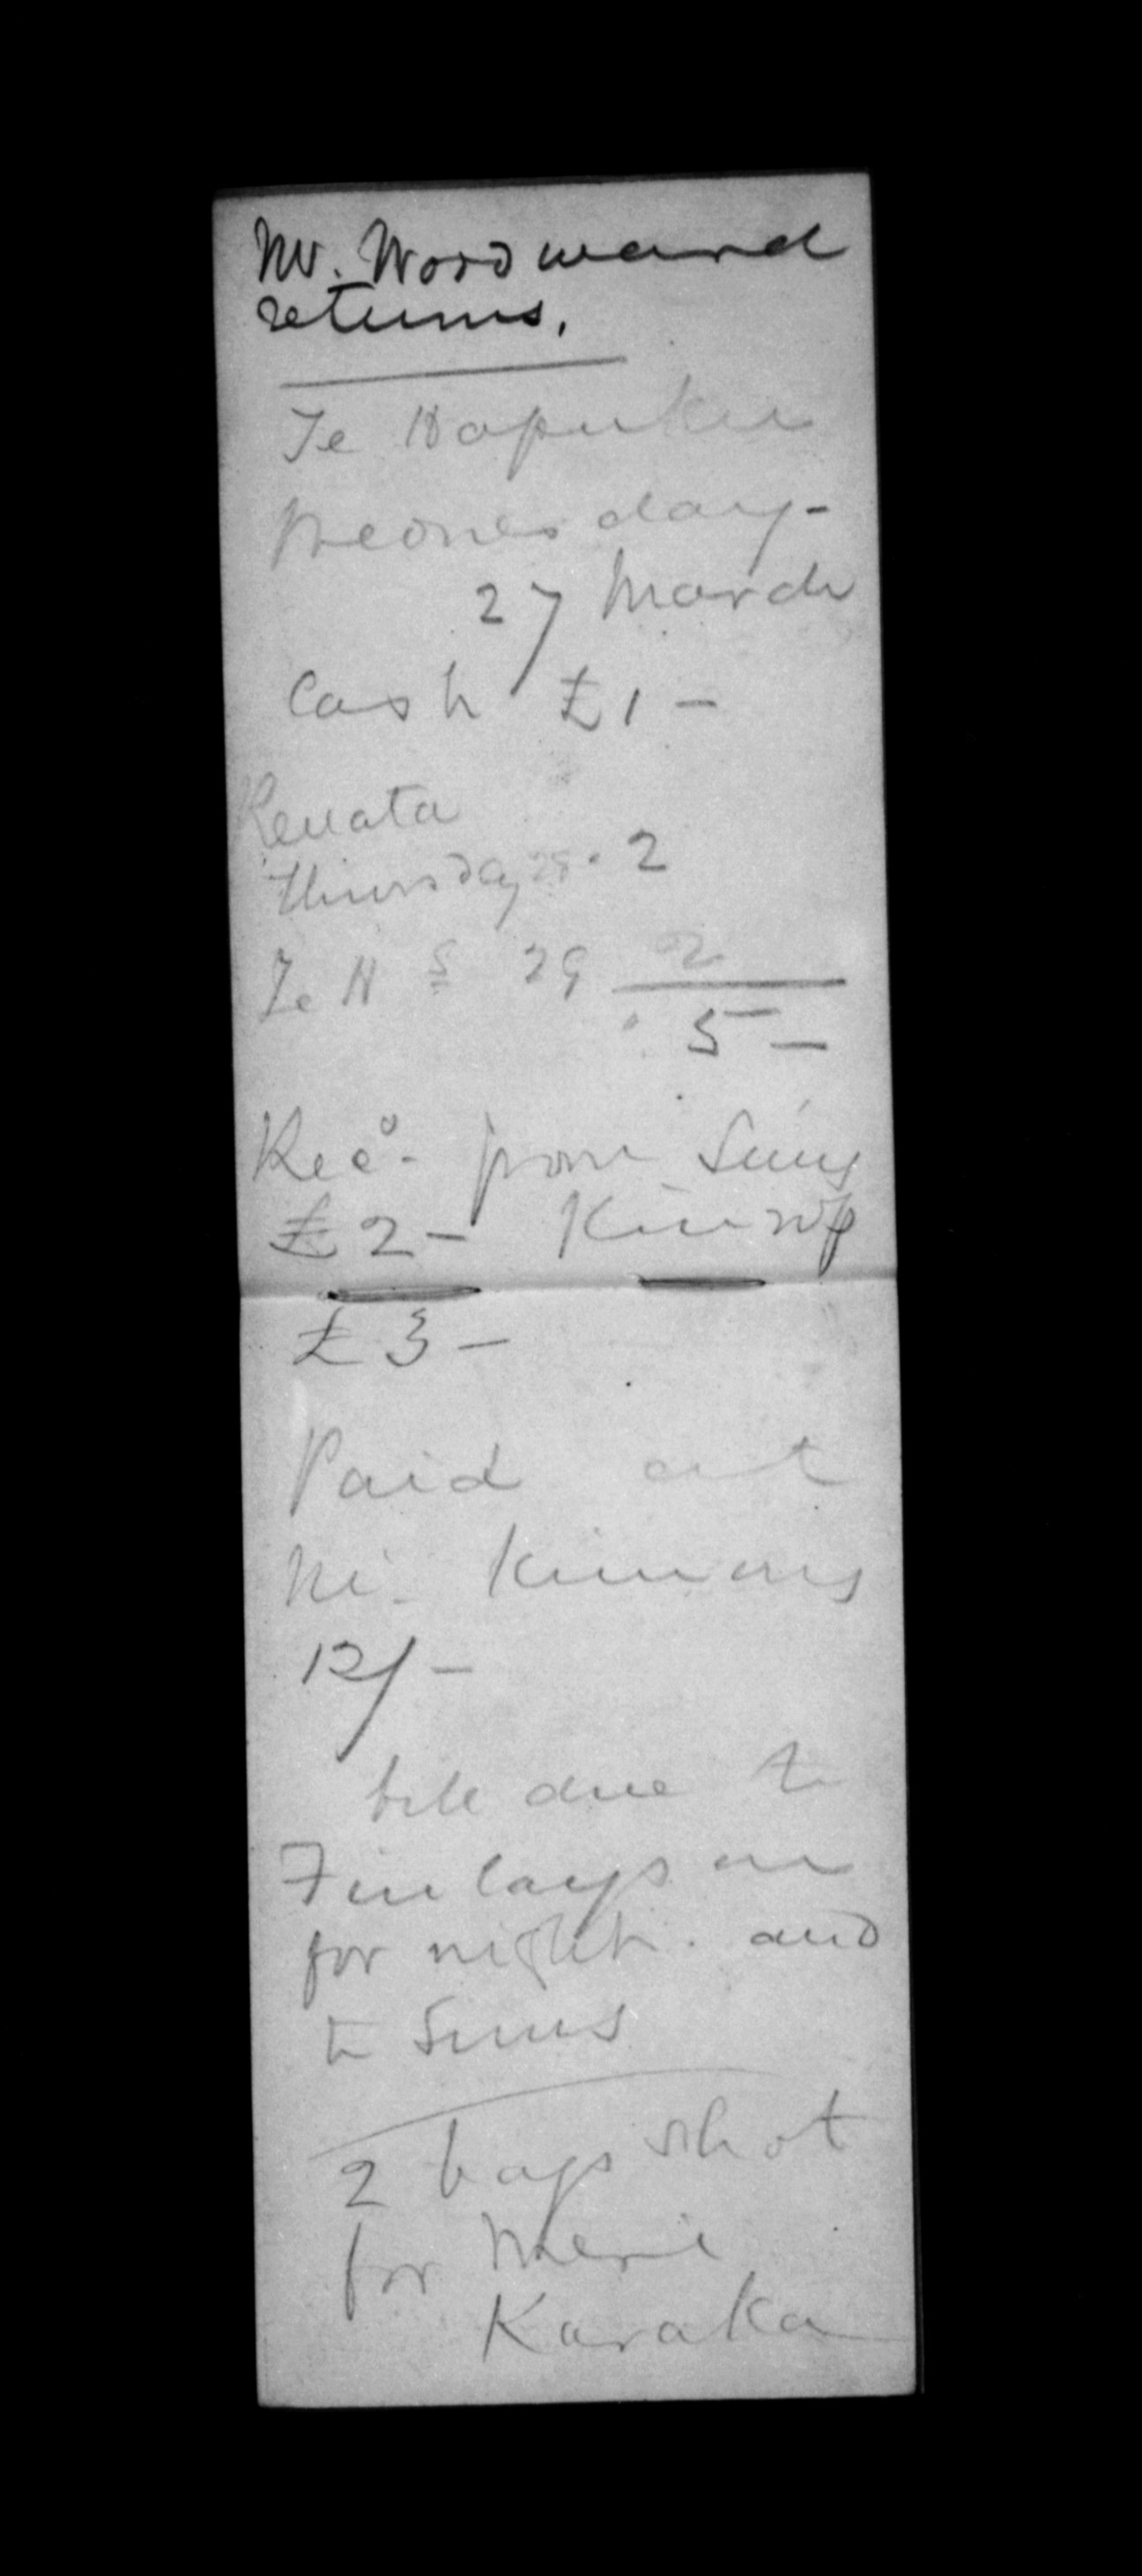 Mr. Woodward
returns.
Te Hapuku
Wednesday -
27 March
Cash £1 -
Renata
Thursday 28 . 2
Te H 29 2
5 —
Recd. from
£2 -
£3 -
Paid at
12/-
bill due to
Finlayson
for night. and
to Sims
2 bags shot
for Meri
Karaka